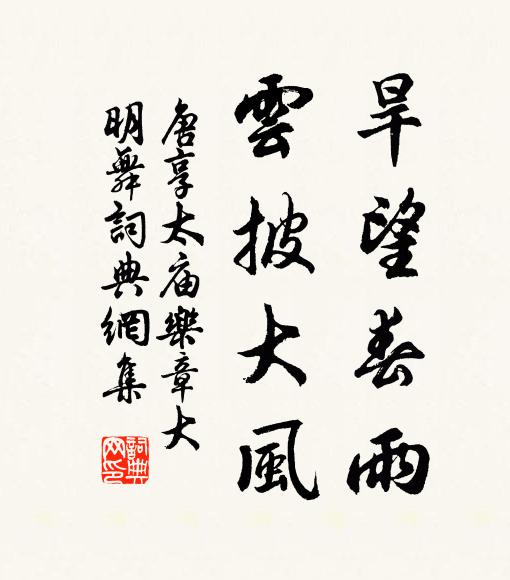 旱望春雨
雲披大風
唐享太庙樂章大
明舞詞典網集
詞典网印